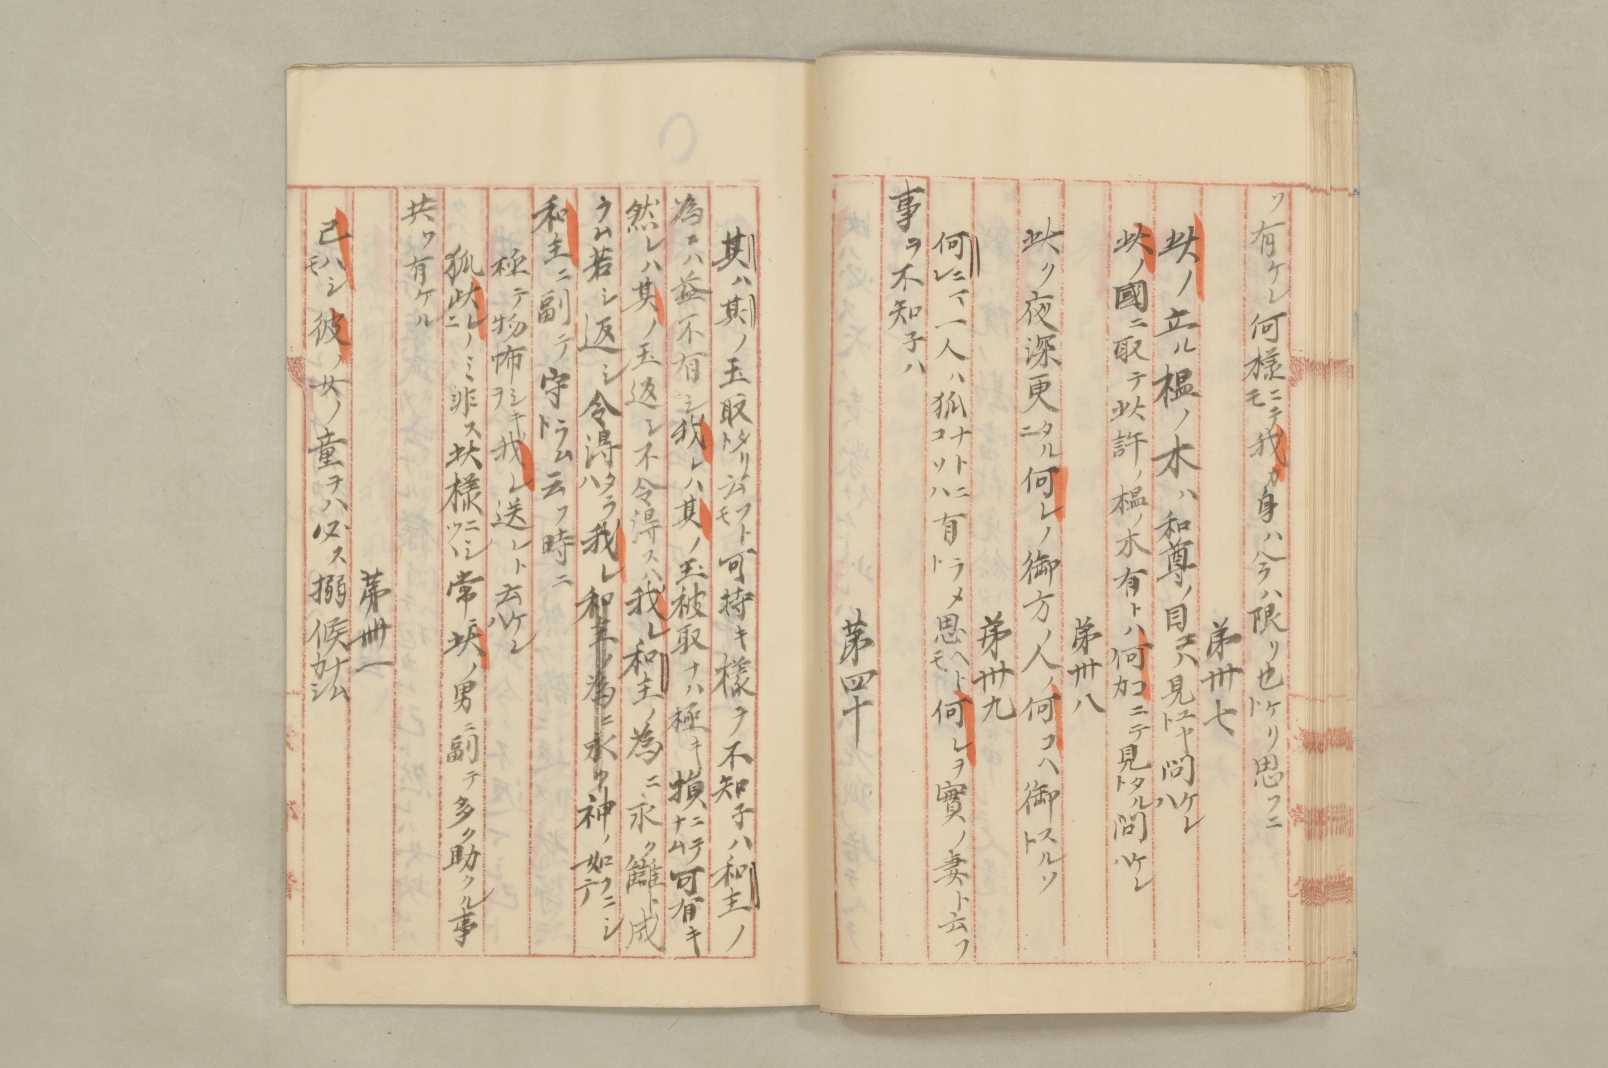 ツ有ケレ何様ニテモ我カ身ハ今ハ限リ也ケリト思フニ
第卅七
此ノ立ル榲ノ木ハ和尊ノ目ニハ見ユヤト問ケレハ
此ノ國ニ取テ此許ノ榲ノ木有トハ何コニテ見タルト問ケレハ
第卅八
此ク夜深更タルニ何レノ御方ノ人ノ何コヘ御スルソト
第卅九
何ニテレ一人ハ狐ナトニコソハ有ラメト思ヘトモ何レヲ實ノ妻ト云フ
事ヲ不知子ハ
第四十
其ハ其ノ玉取タリト云フトモ可持キ様ヲ不知子ハ和主ノ
為ニハ益不有シ我レハ其ノ玉被取ナハ極キ損ニテナム可有キ
然レハ其ノ玉返シ不令得スハ我レ和主ノ為ニ永ク讎ト成
ラム若シ返シ令得タラハ我レ和主ノ為ニ永ク神ノ如クニシテ
和主ニ副テ守ラムト云フ時ニ
極テ物怖シキヲ我レ送レト云ケレハ
狐此レニノミ非ス此様ニシツヽ常ニ此ノ男ニ副テ多ク助クル事
共ツ有ケル
第卌一
己ハシモ彼ノ女ノ童ヲハ必ス搦候ナムカシ